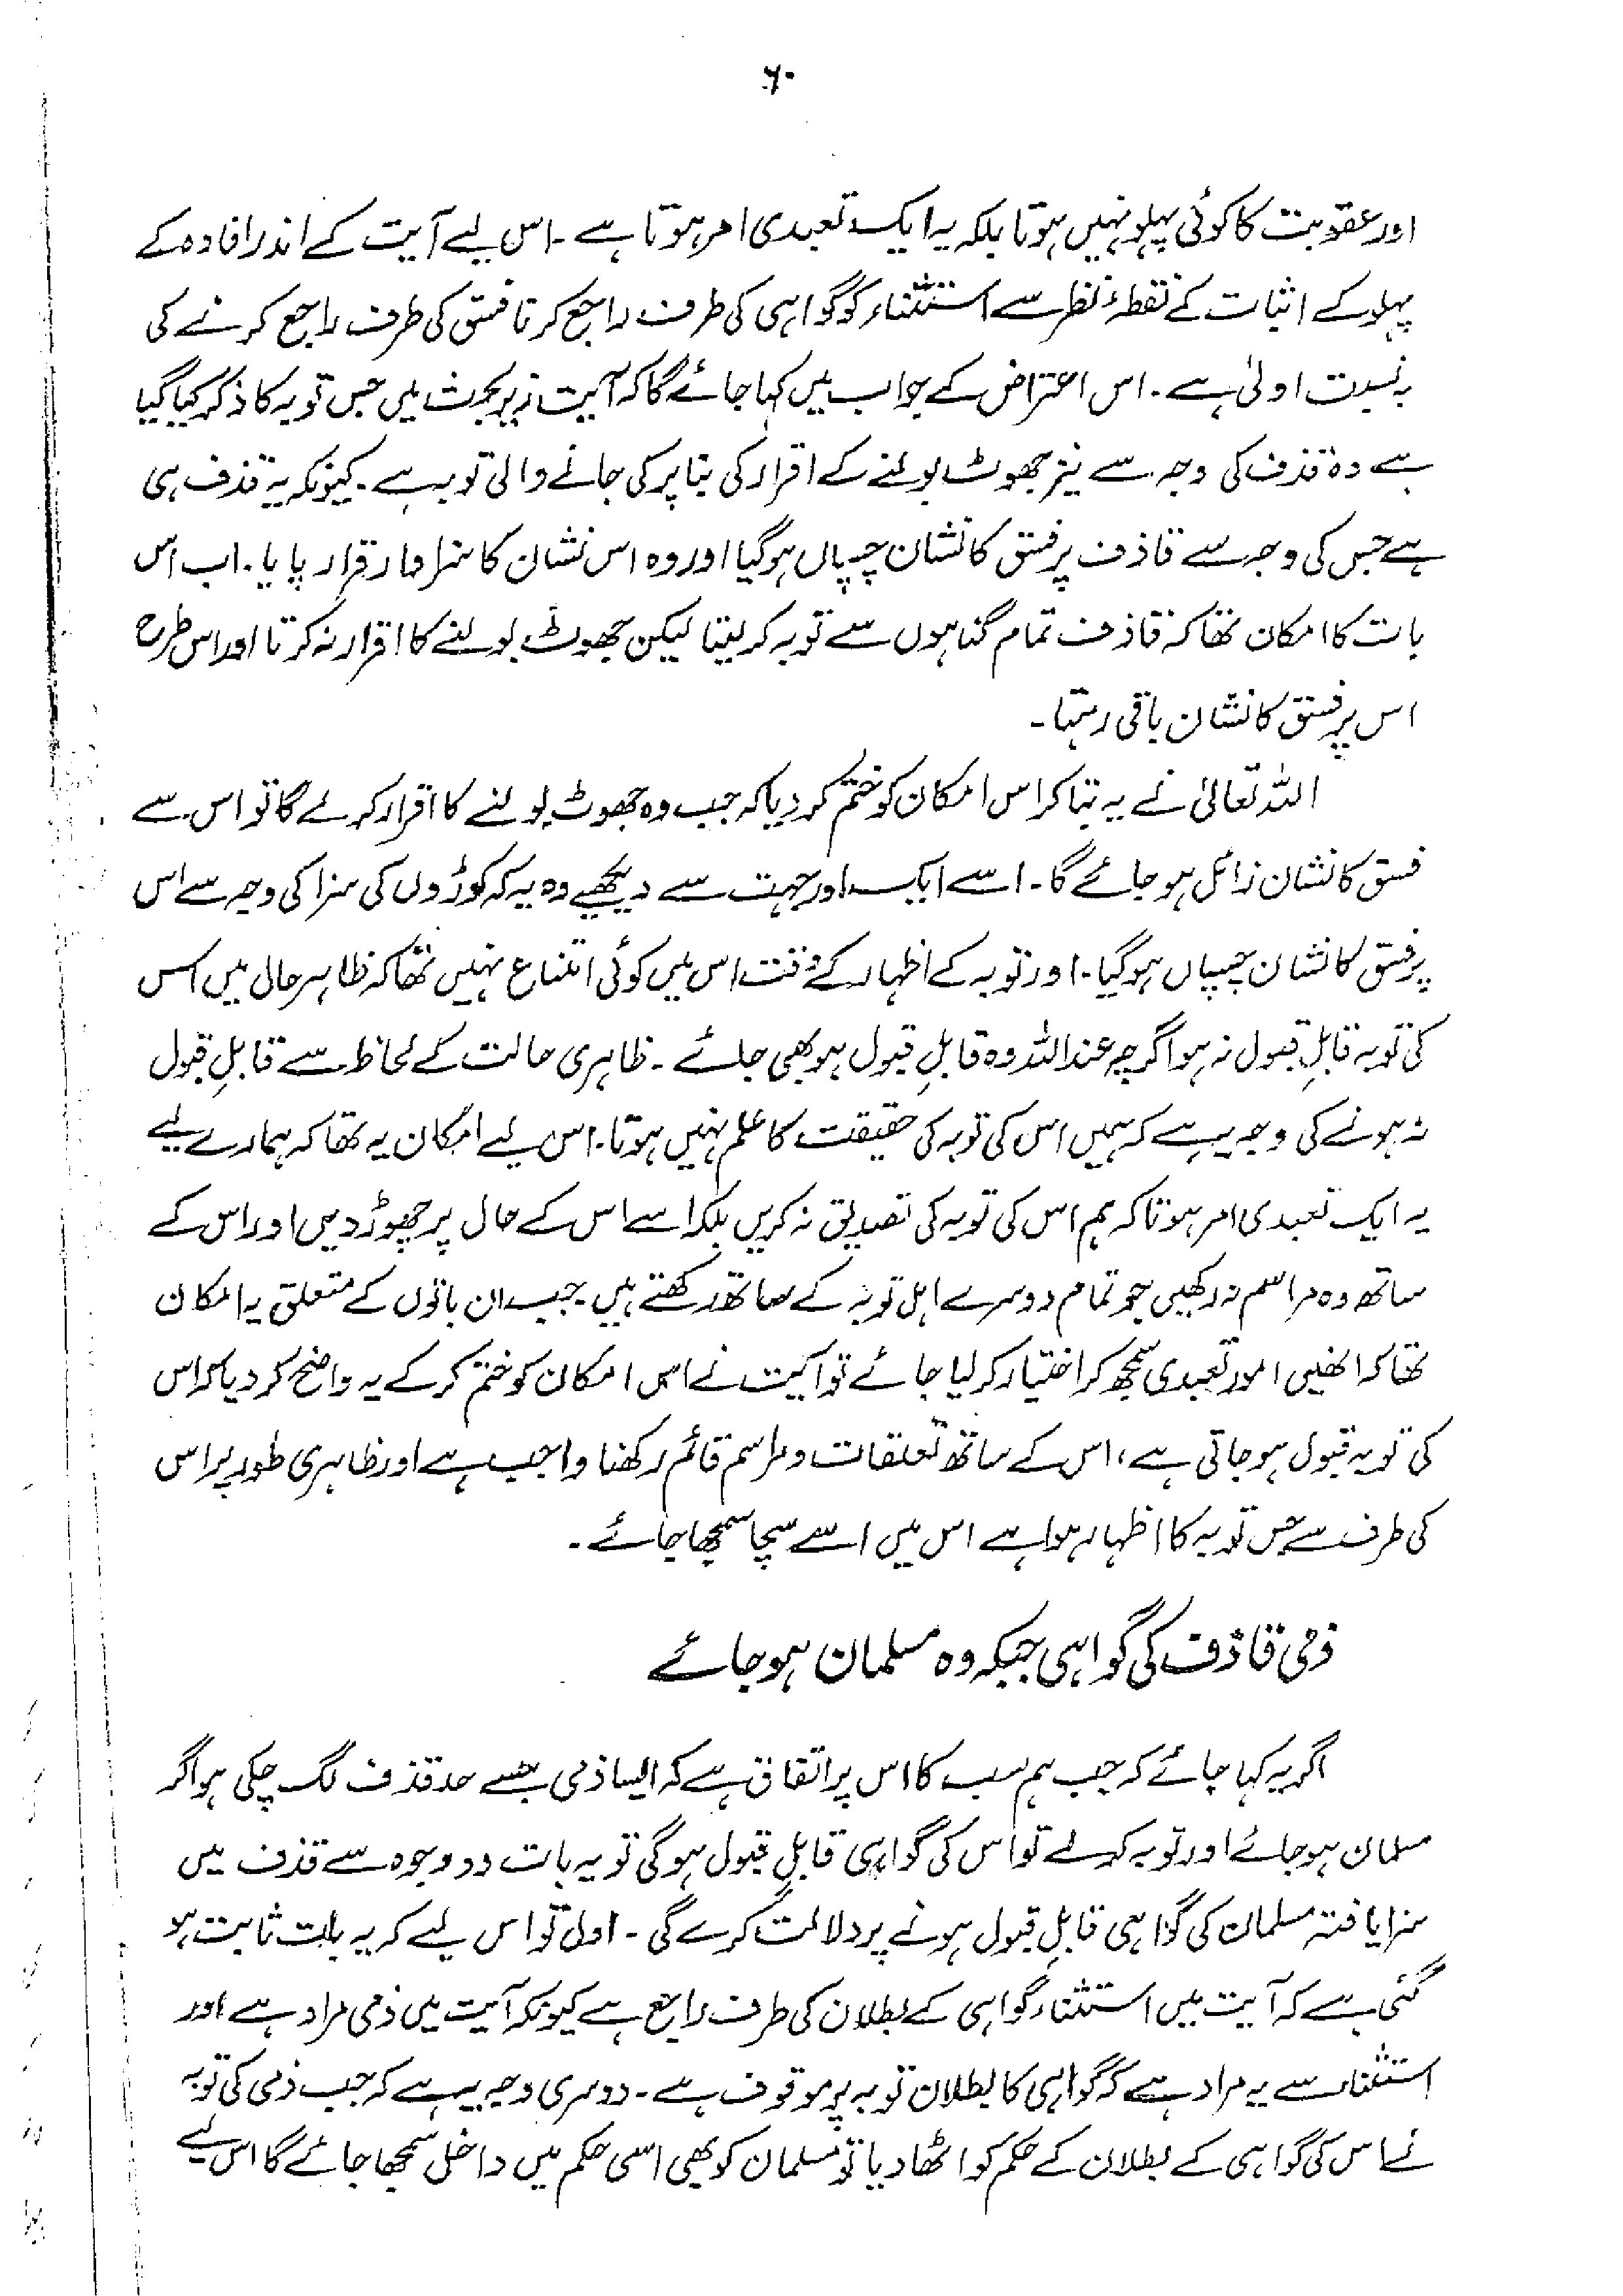 ۶۰
اور عقوبت کا کوئی پہلو نہیں ہوتا بلکہ یہ ایک تعبدی امر ہوتا ہے۔ اس لیے آیت کے اندر افادہ کے
پہلو کے اثبات کے نقطۂ نظر سے استثناء کو گواہی کی طرف راجع کرنا فسق کی طرف راجع کرنے کی
بہ نسبت اولیٰ ہے۔ اس اعتراض کے جواب میں کہا جائے گا کہ آیت زیر بحث میں جس توبہ کا ذکر کیا گیا
ہے وہ قذف کی وجہ سے نیز جھوٹ بولنے کے اقرار کی بنا پر کی جانے والی توبہ ہے۔ کیونکہ یہ قذف ہی
ہے جس کی وجہ سے قاذف پر فسق کا نشان چسپاں ہوگیا اور وہ اس نشان کا سزاوار قرار پایا۔ اب اس
بات کا امکان تھا کہ قاذف تمام گناہوں سے توبہ کر لیتا لیکن جھوٹ بولنے کا اقرار نہ کرتا اور اس طرح
اس پر فسق کا نشان باقی رہتا۔
اللہ تعالیٰ نے یہ بتا کر اس امکان کو ختم کر دیا کہ جب وہ جھوٹ بولنے کا اقرار کر لے گا تو اس سے
فسق کا نشان زائل ہو جائے گا۔ اسے ایک اور جہت سے دیکھیے وہ یہ کہ کوڑوں کی سزا کی وجہ سے اس
پر فسق کا نشان چسپاں ہوگیا۔ اور توبہ کے اظہار کے وقت اس میں کوئی امتناع نہیں تھا کہ ظاہر حال میں اس
کی توبہ قابلِ قبول نہ ہو اگرچہ عنداللہ وہ قابلِ قبول ہو بھی جائے۔ ظاہری حالت کے لحاظ سے قابلِ قبول
نہ ہونے کی وجہ یہ ہے کہ ہمیں اس کی توبہ کی حقیقت کا علم نہیں ہوتا۔ اس لیے امکان یہ تھا کہ ہمارے لیے
یہ ایک تعبدی امر ہوتا کہ ہم اس کی توبہ کی تصدیق نہ کریں بلکہ اسے اس کے حال پر چھوڑ دیں اور اس کے
ساتھ وہ مراسم نہ رکھیں جو تمام دوسرے اہل توبہ کے ساتھ رکھتے ہیں۔ جب ان باتوں کے متعلق یہ امکان
تھا کہ انھیں امور تعبدی سمجھ کر اختیار کر لیا جائے تو آیت نے اس امکان کو ختم کر کے یہ واضح کر دیا کہ اس
کی توبہ قبول ہو جاتی ہے، اس کے ساتھ تعلقات و مراسم قائم رکھنا واجب ہے اور ظاہری طور پر اس
کی طرف سے جس توبہ کا اظہار ہوا ہے اس میں اسے سچا سمجھا جائے۔
ذمی قاذف کی گواہی جبکہ وہ مسلمان ہو جائے
اگر یہ کہا جائے کہ جب ہم سب کا اس پر اتفاق ہے کہ ایسا ذمی جسے حد قذف لگ چکی ہو اگر
مسلمان ہو جائے اور توبہ کر لے تو اس کی گواہی قابلِ قبول ہوگی تو یہ بات دو وجوہ سے قذف میں
سزا یافتہ مسلمان کی گواہی قابلِ قبول ہونے پر دلالت کرے گی۔ اول تو اس لیے کہ یہ بات ثابت ہو
گئی ہے کہ آیت میں استثناء گواہی کے بطلان کی طرف راجع ہے کیونکہ آیت میں ذمی مراد ہے اور
استثناء سے یہ مراد ہے کہ گواہی کا بطلان توبہ پر موقوف ہے۔ دوسری وجہ یہ ہے کہ جب ذمی کی توبہ
نے اس کی گواہی کے بطلان کے حکم کو اٹھا دیا تو مسلمان کو بھی اسی حکم میں داخل سمجھا جائے گا اس لیے